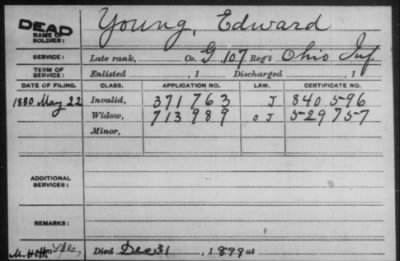 DEAD Young, Edward
NAME OF SOLDIER:
SERVICE: Late rank, Co. G 107 Reg't Ohio Inf.
TERM OF SERVICE: Enlisted , 1 Discharged , 1
DATE OF FILING. CLASS. APPLICATION NO. LAW. CERTIFICATE NO.
1880 May 22 Invalid, 371763 J 840596
Widow, 713989 OJ 529757
Minor,
ADDITIONAL SERVICES:
REMARKS:
Died Dec 31 , 1899 at